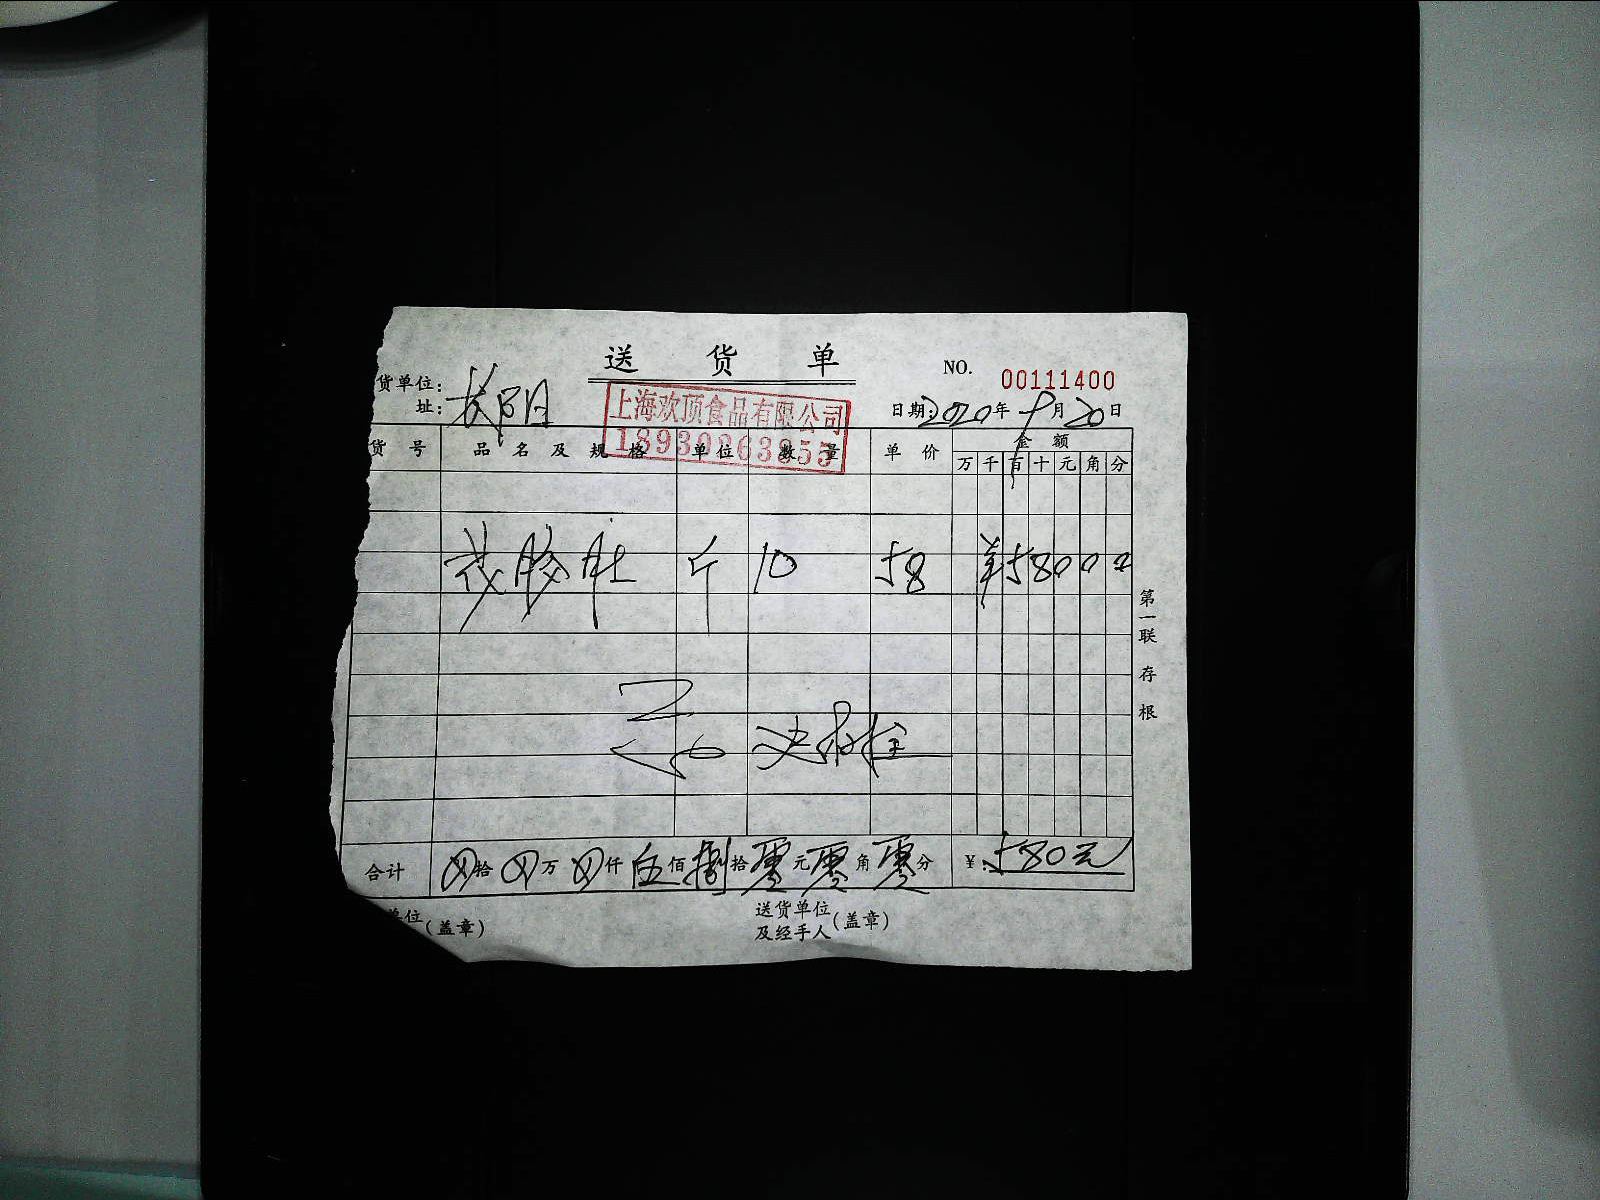 送货单
NO. 00111400
货单位：
址：
长阳
上海欢顶食品有限公司
18930263855
日期：2020年9月20日
货号 品名及规格 单位 数量 单价 金额
万 千 百 十 元 角 分
花胶肚 斤 10 58 ¥58000
第一联 存根
合计 拾 万 仟 伍 佰 捌 拾 零 元 零 角 零 分 ¥：580元
单位（盖章）
送货单位
及经手人（盖章）